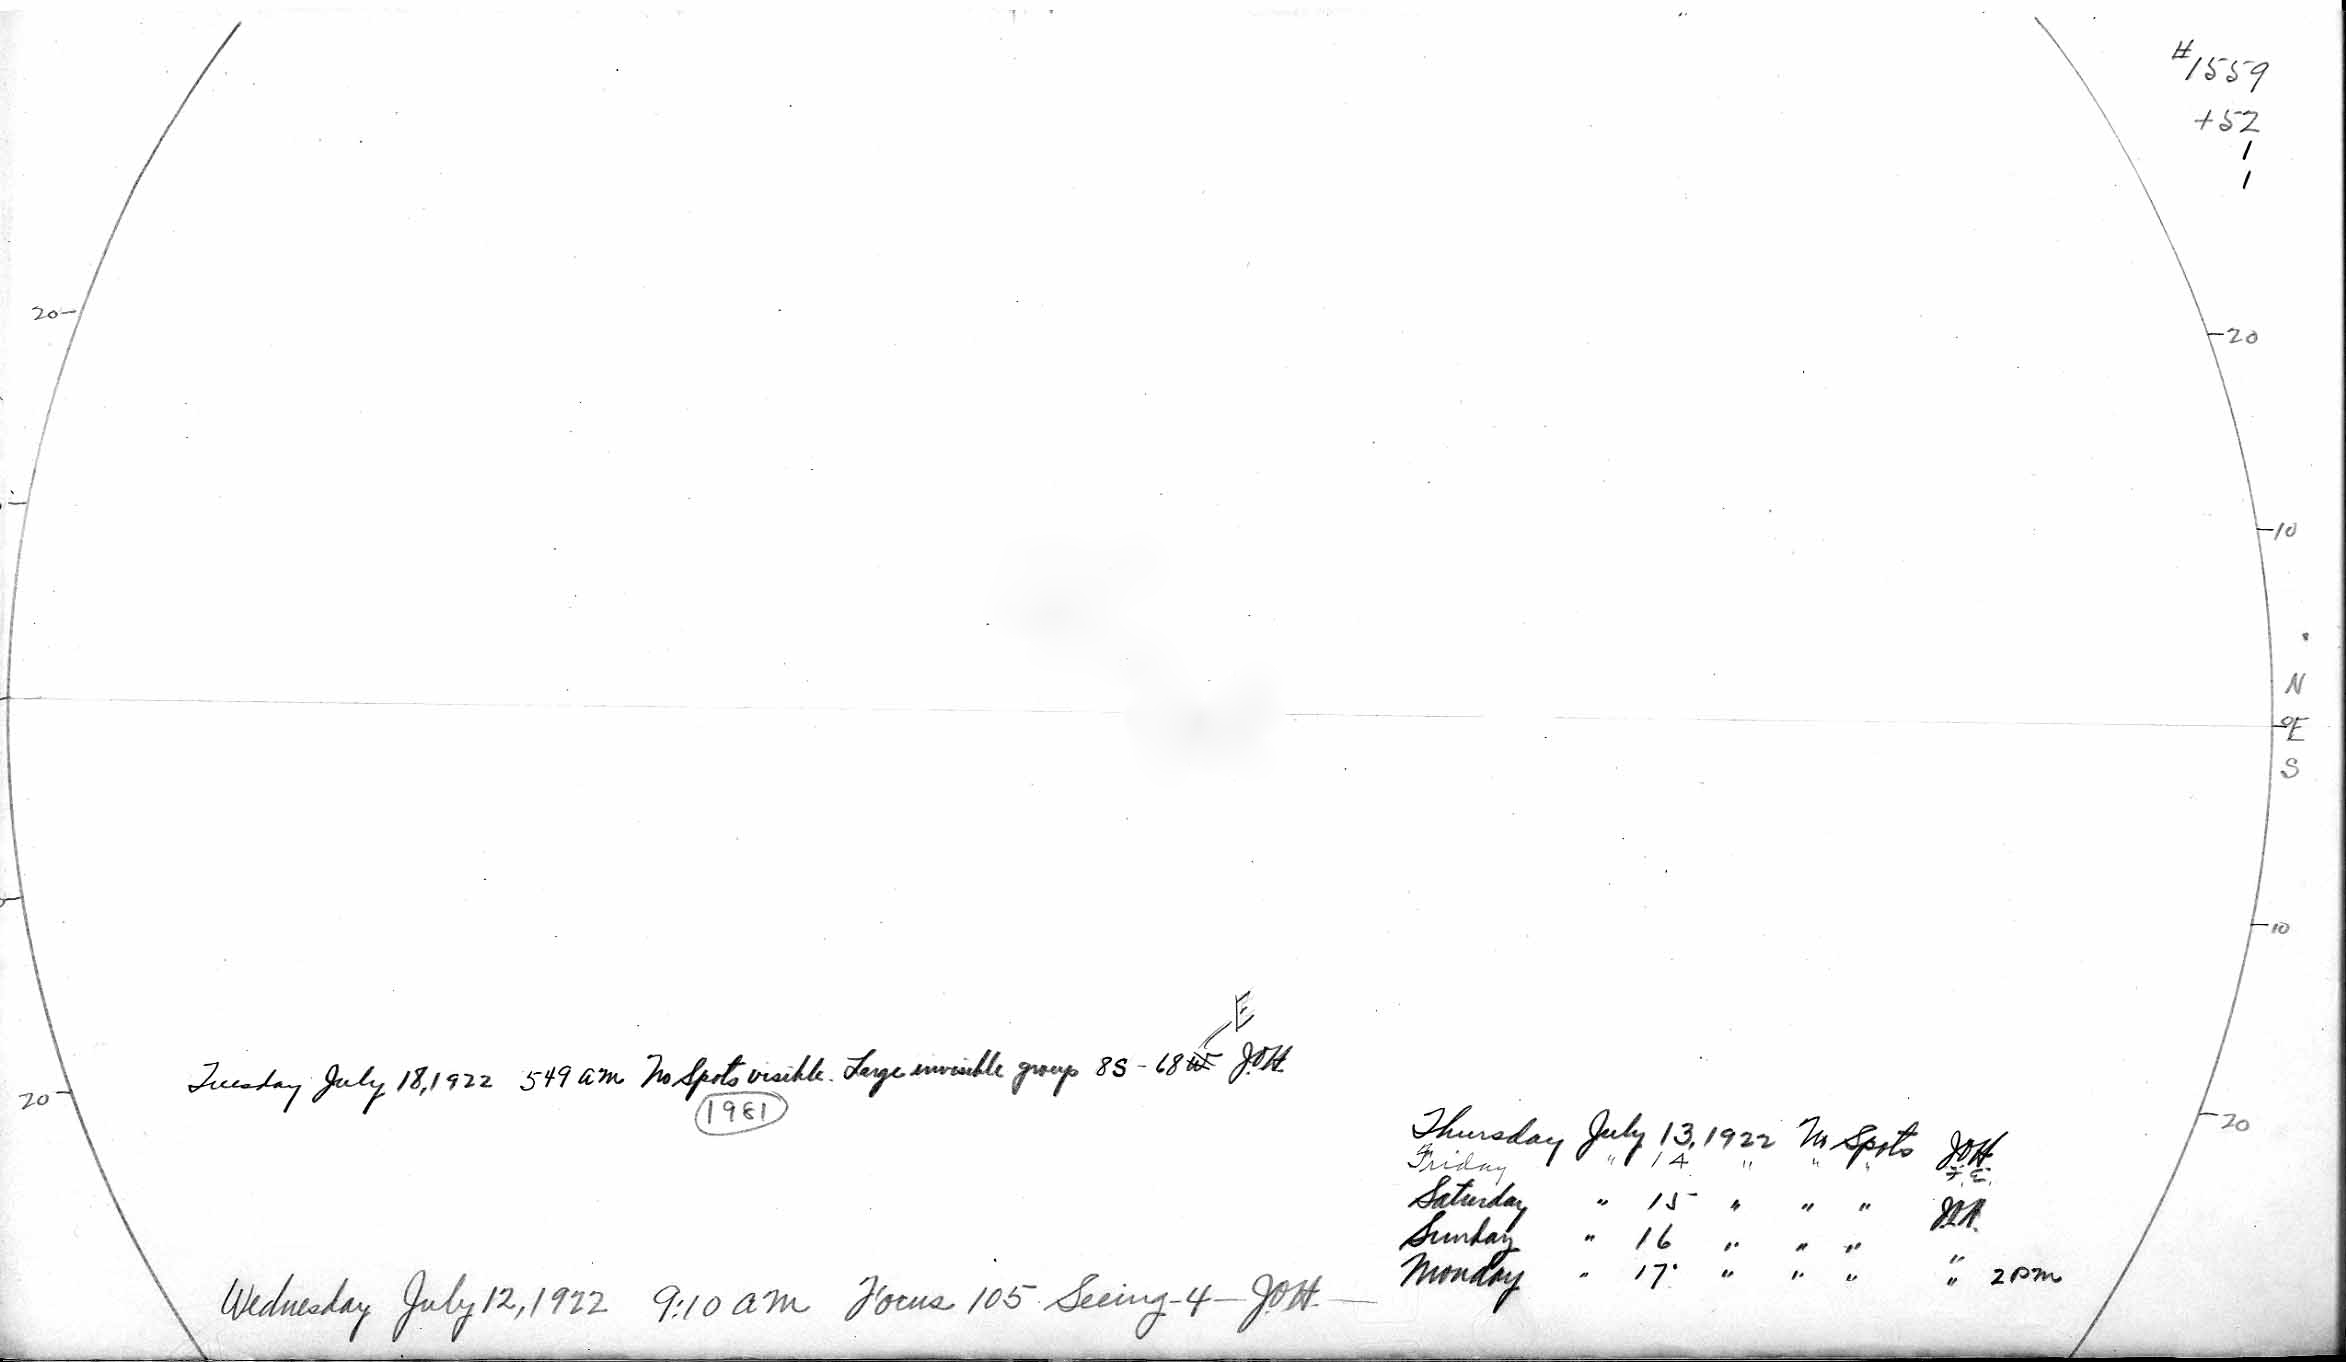 #1559
+52
1
1
20
20
10
N
E
S
10
E
Tuesday July 18, 1922 549 am No Spots visible. Large invisible group 8S - 68 W J.O.H.
1981
20
20
Thursday July 13, 1922 No Spots JOH
Friday " 14 " " " F.E.
Saturday " 15 " " " JOH.
Sunday " 16 " " " "
Monday " 17 " " " " 2 pm
Wednesday July 12, 1922 9:10 am Focus 105 Seeing - 4 - J.O.H. -